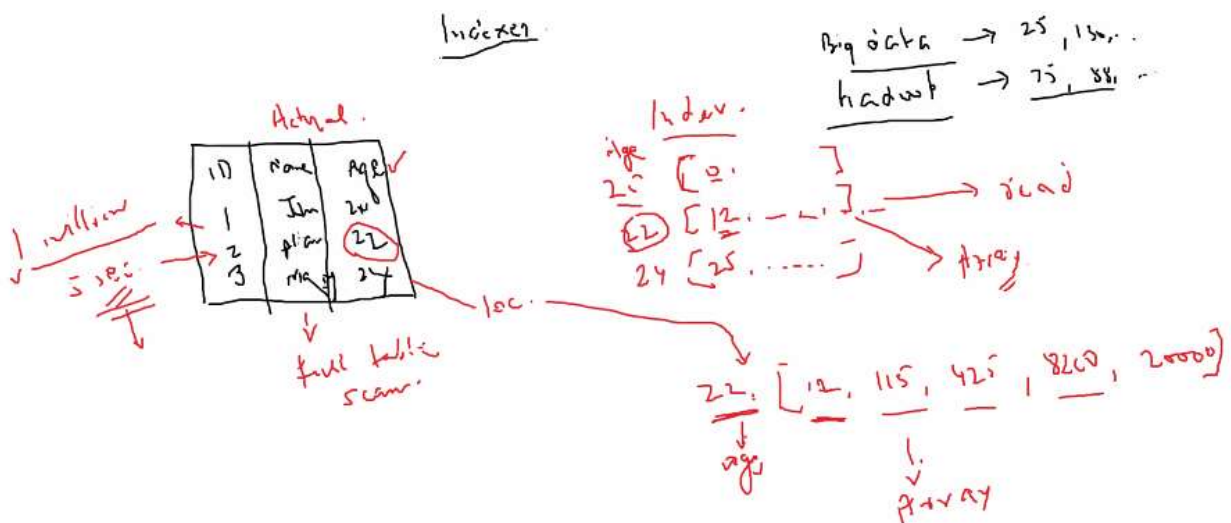 Indexes
Big data → 25, 150,..
hadoop → 75, 88, ...
Actual.
ID Name Age
1 John 24
2 22
3 24
1 million
5 sec.
full table
scan.
loc.
Index.
Age
25 [0. ]
22 [12. -- . -. ] → read
24 [25. ..... ]
Array
22. [12, 115, 425, 8260, 20000]
age
Array